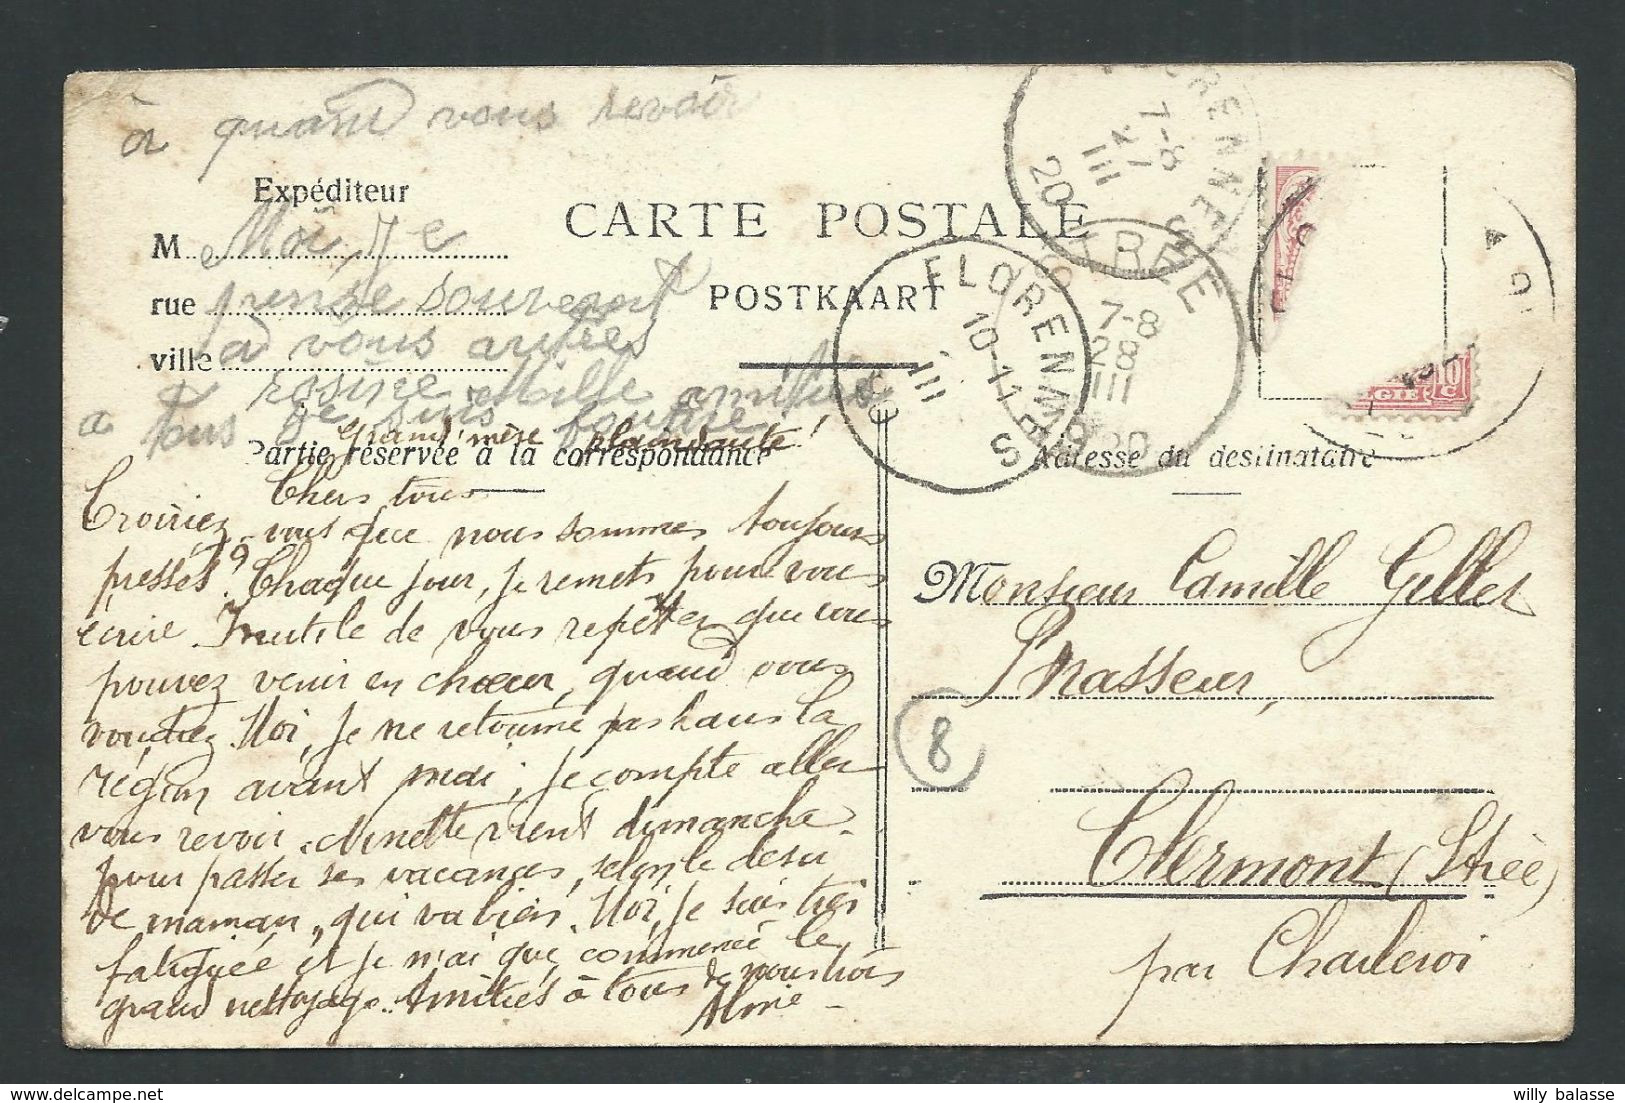 à quand vous revoir
Expéditeur
M Moi, je
rue pense souvent
ville à vous autres
rosine Mille amitiés
a tous je suis
grand'mère
CARTE POSTALE
POSTKAART
Partie réservée à la correspondance
Adresse du destinataire
Chers tous
Croiriez-vous que nous sommes toujours
pressés? Chaque jour, je remets pour vous
écrire. Inutile de vous repéter que vous
pouvez venir en chœur, quand vous
voudrez. Moi, je ne retourne pas dans la
région avant mai; je compte aller
vous revoir. Ninette vient dimanche
pour passer ses vacances, selon le désir
de maman, qui va bien. Moi, je suis très
fatiguée et je n'ai que commencé le
grand nettoyage. Amitiés à tous de nous trois
Almie
Monsieur Camille Gillet
Brasseur,
Clermont (Strée)
par Charleroi
8
FLORENNES
7-8
VI
III
20
FLORENNES
10-11
III
STRÉE
7-8
28
III
1920
10
c